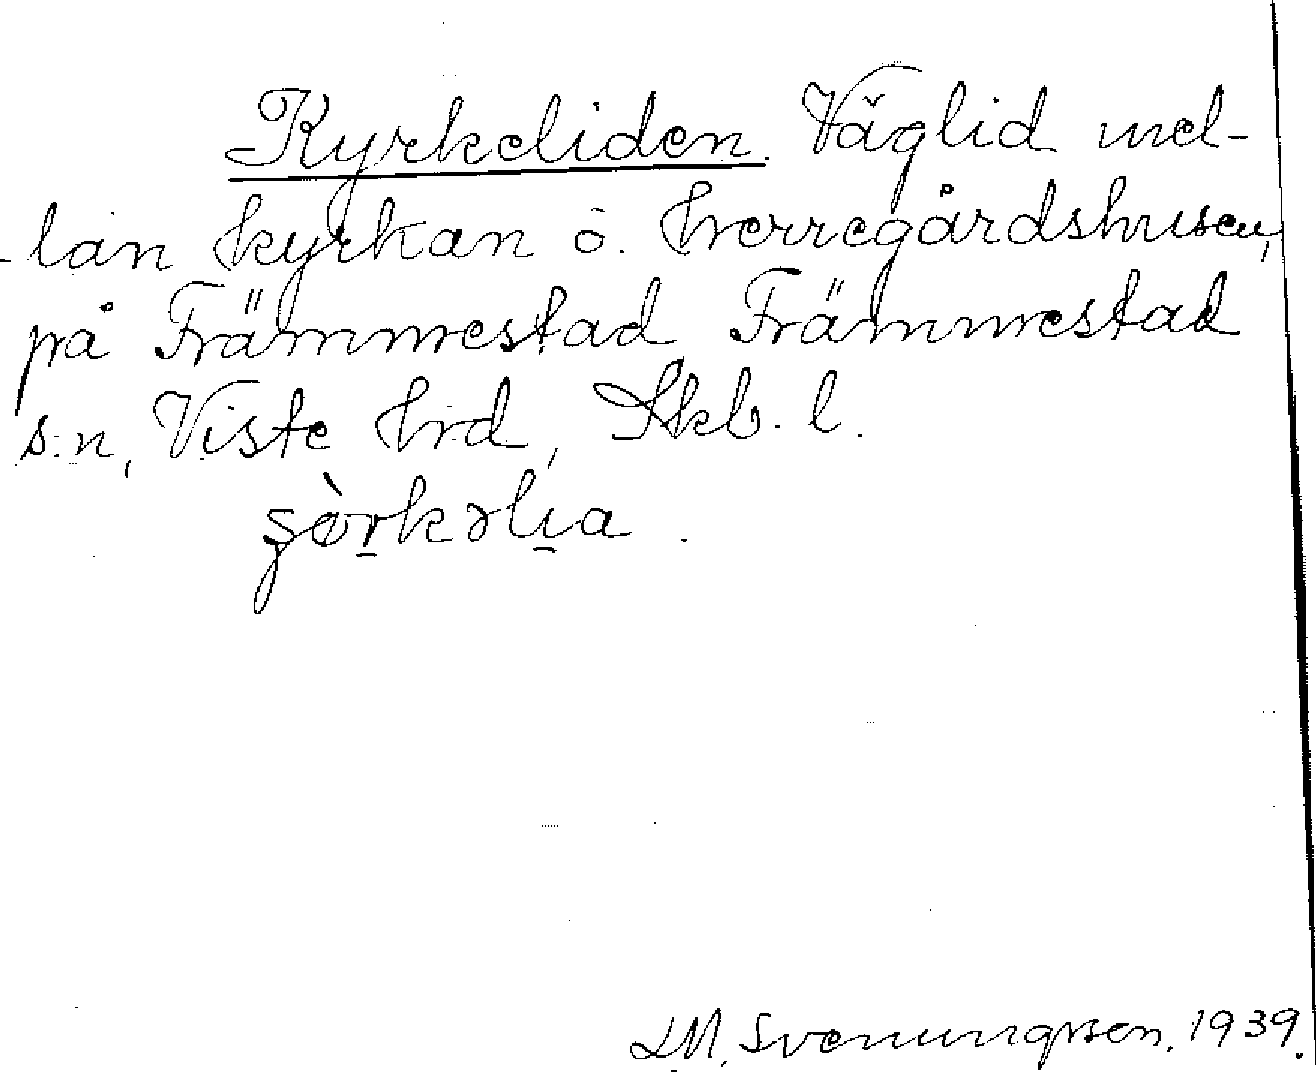 Kyrkeliden. Väglid mel-
lan kyrkan o. herregårdshusen,
på Främmestad Främmestad
s:n, Viste hrd, Skb. l.
LM. Svenungsson. 1939.